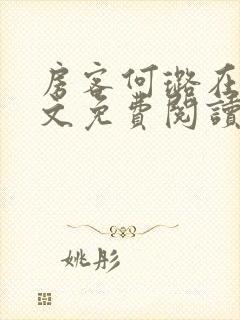 房客何璐在
文免费阅读
姚彤